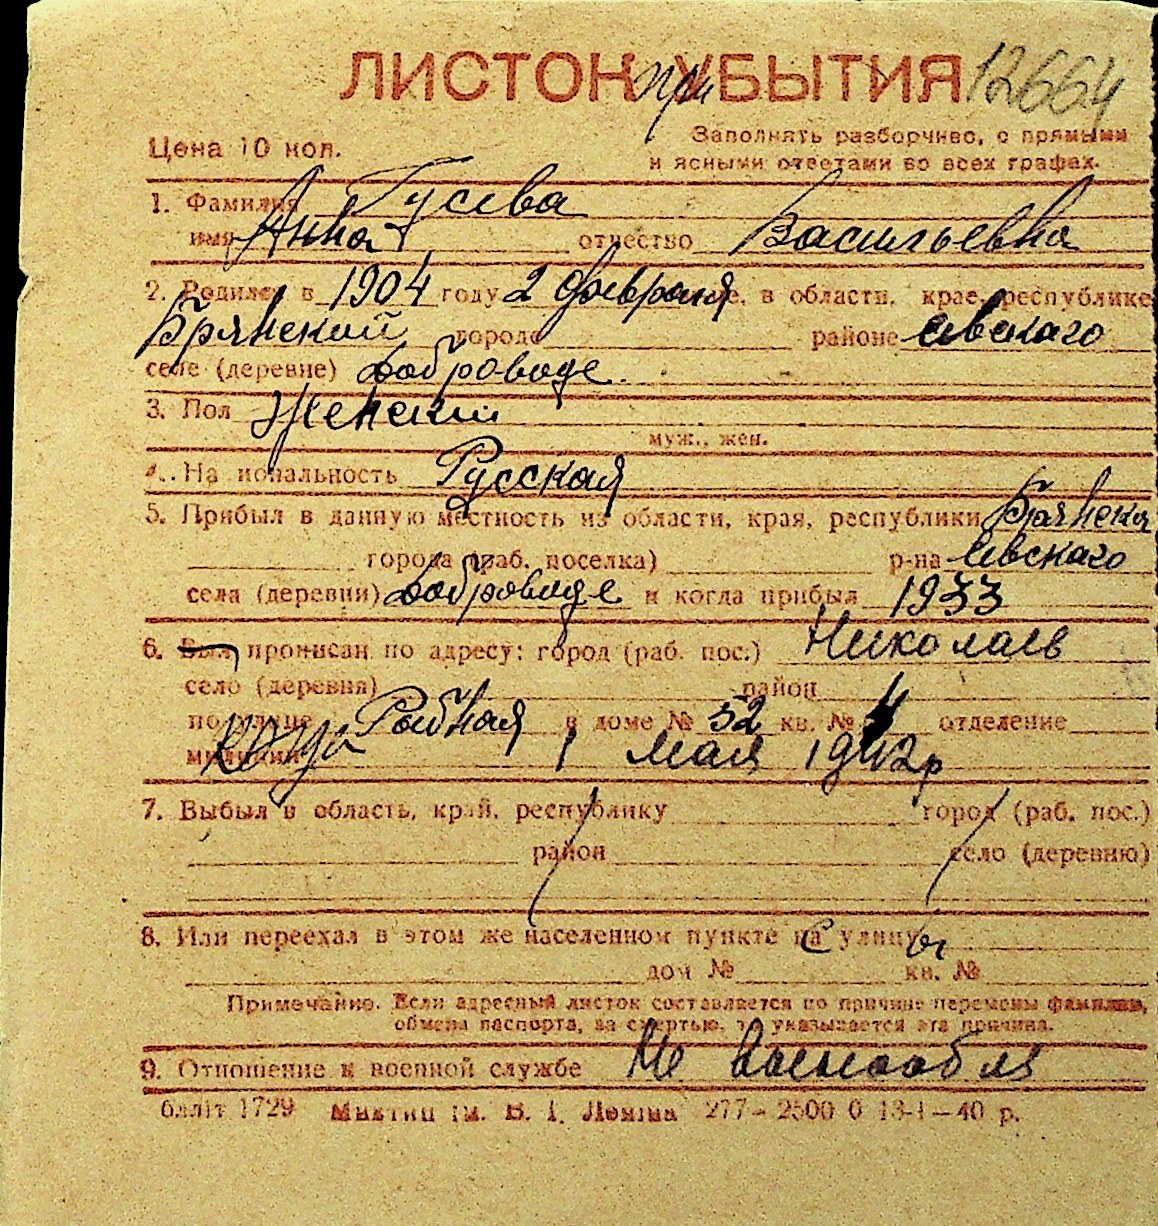 ЛИСТОК при УБЫТИЯ 12664
Цена 10 коп. Заполнять разборчиво, с прямыми
и ясными ответами во всех графах.
1. Фамилия Гусева
имя Анна отчество Васильевна
2. Родился в 1904 году 2 февраля е, в области, крае, республике
Брянский городе районе Севского
селе (деревне) Доброводе
3. Пол женский
муж., жен.
4. На иональность Русская
5. Прибыл в данную местность из области, края, республики Брянска
города (раб. поселка) р-на Севского
села (деревни) Доброводе и когда прибыл 1933
6. Был прописан по адресу: город (раб. пос.) Николаев
село (деревня) район
по улице Рыбная в доме № 52 кв. № 4 отделение
милиции 1 мая 1942 г
7. Выбыл в область, край, республику город (раб. пос.)
район село (деревню)
8. Или переехал в этом же населенном пункте с улицы
дом № кв. №
Примечание. Если адресный листок составляется по причине перемены фамилии,
обмена паспорта, за смертью, то указывается эта причина.
9. Отношение к военной службе Не
бліт 1729 Миктип ім. В. І. Леніна 277-2500 0 13-I-40 р.